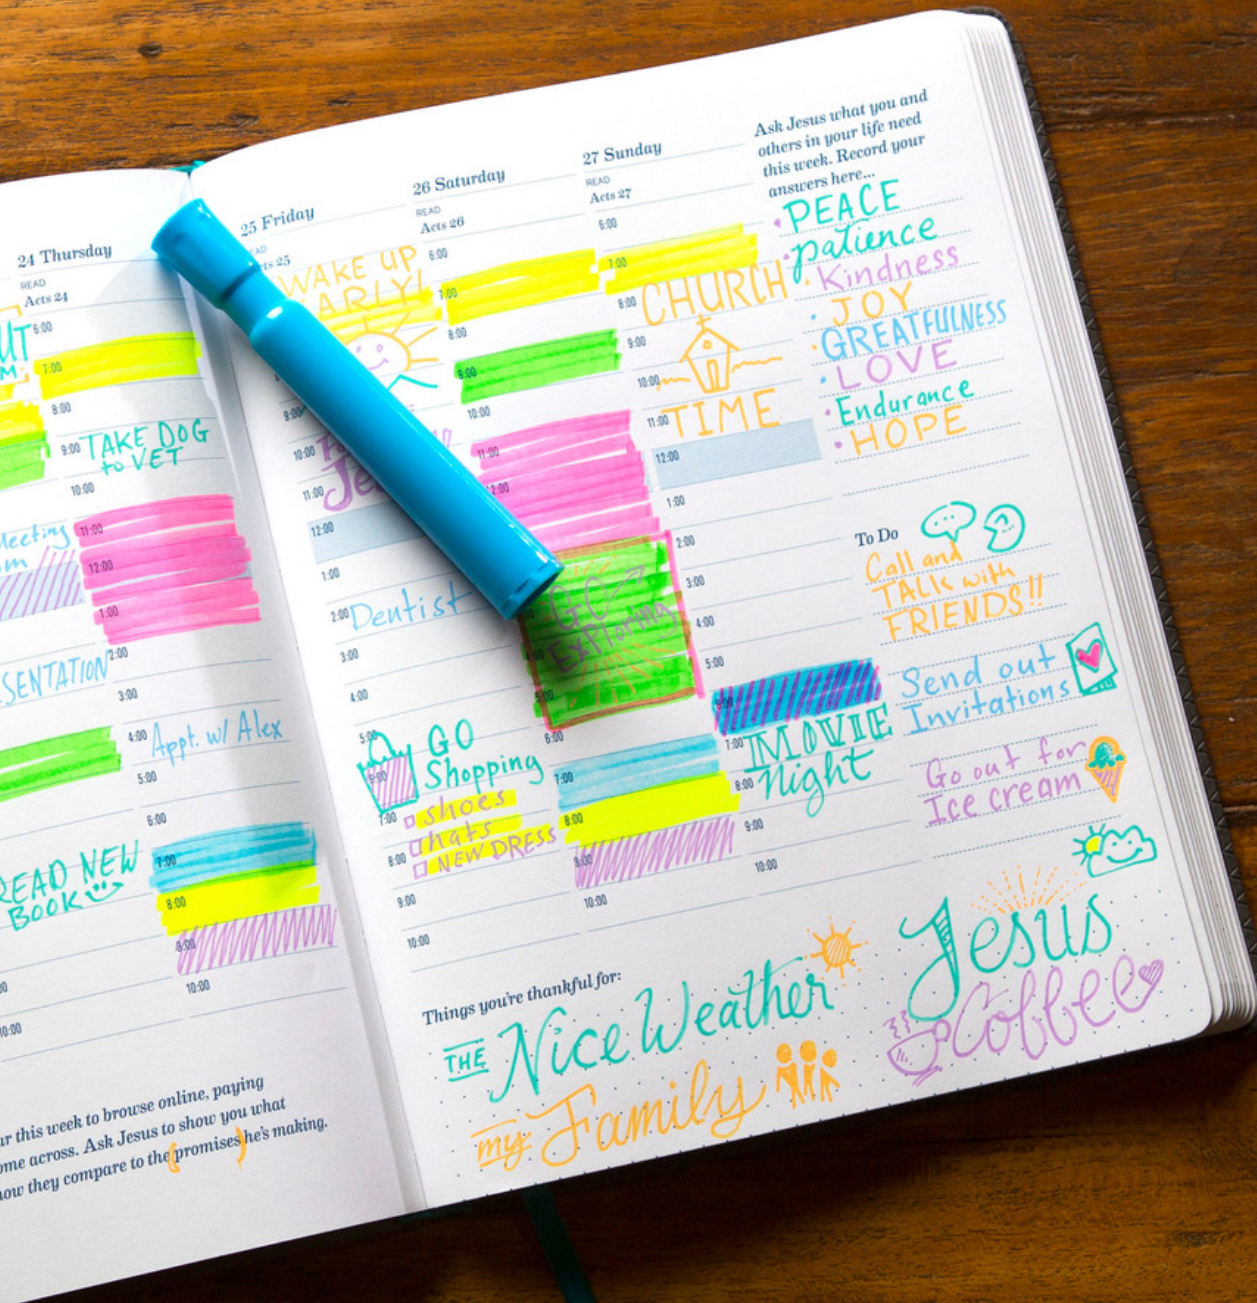 24 Thursday
READ
Acts 24
6:00
7:00
8:00
9:00 TAKE DOG
to VET
10:00
11:00
12:00
1:00
2:00
3:00
4:00 Appt. w/ Alex
5:00
6:00
7:00
8:00
9:00
10:00
Meeting
SENTATION
READ NEW
BOOK
10:00
this week to browse online, paying
come across. Ask Jesus to show you what
how they compare to the (promises) he's making.
25 Friday
READ
Acts 25
WAKE UP
EARLY!
9:00
10:00
11:00
12:00
1:00
2:00 Dentist
3:00
4:00
5:00 GO
Shopping
6:00
7:00 shoes
hats
8:00 NEW DRESS
9:00
10:00
26 Saturday
READ
Acts 26
6:00
7:00
9:00
10:00
11:00
12:00
GO
Exploring
5:00
6:00
7:00
8:00
9:00
10:00
27 Sunday
READ
Acts 27
6:00
7:00
8:00 CHURCH
9:00
10:00
11:00 TIME
12:00
1:00
2:00
3:00
4:00
5:00
6:00
7:00 MOVIE
Night
8:00
9:00
10:00
Ask Jesus what you and
others in your life need
this week. Record your
answers here...
PEACE
patience
Kindness
JOY
GREATFULNESS
LOVE
Endurance
HOPE
To Do
Call and
TALK with
FRIENDS!!
Send out
Invitations
Go out for
Ice cream
Things you're thankful for:
THE Nice Weather
my Family
Jesus
Coffee